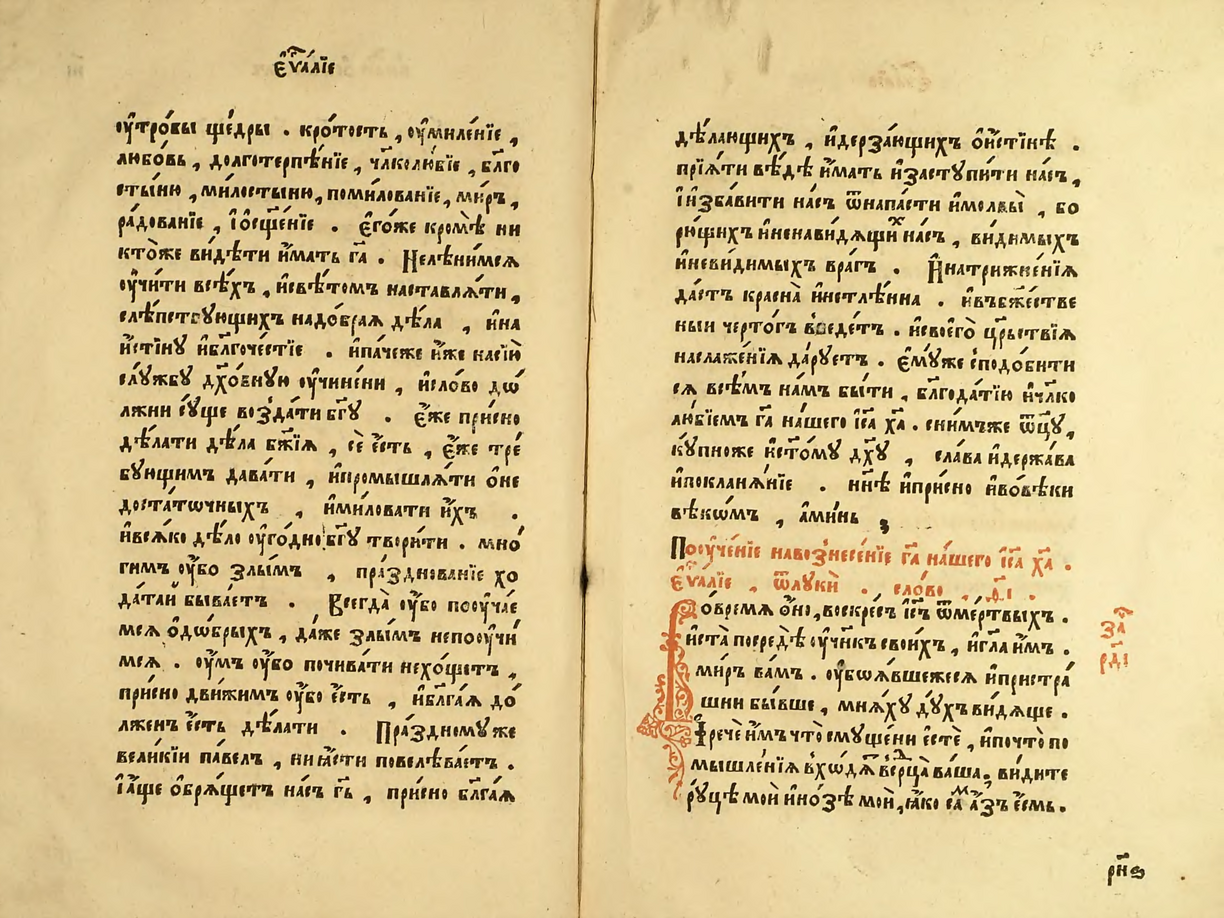 є҆ѵⷢ҇алїе
ᲂу҆тро́бы ще́дры . кро́тость , ᲂу҆миле́нїе ,
любо́вь , долготерпѣ́нїе , чл҃колю́бїе , бл҃го
стыню , ми́лостыню , поми́лованїе , ми́ръ ,
ра́дованїе , і҆ѻ҆сщ҃е́нїе . є҆го́же кромѣ̀ ни
кто̀же ви́дѣти и҆́мать гⷭ҇а . Нелѣни́мсѧ
ᲂу҆чи́ти всѣ́хъ , и҆свѣ́томъ наставлѧ́ти ,
слѣ́пствꙋющихъ надо́браѧ дѣ́ла , и҆на
и҆́стинꙋ и҆бл҃гоче́стїе . и҆па́чеже и҆̀же насїю̀
слꙋ́жбꙋ дх҃о́внꙋю ᲂу҆чине́ни , и҆сло́во дѡ́
лжни сꙋ́ще возда́ти бг҃ꙋ . є҆́же при́сно
дѣ́лати дѣ́ла бж҃їѧ , сѐ є҆́сть , є҆́же тре́
бꙋющимъ дава́ти , и҆промышлѧ́ти ѻ҆не
доста́тѡчныхъ , и҆ми́ловати и҆́хъ .
и҆всѧ́ко дѣ́ло ᲂу҆го́дно бг҃ꙋ твори́ти . мно́
гимъ ᲂу҆́бо злы́мъ , пра́зднованїе хо
да́тай быва́етъ . Всегда̀ ᲂу҆́бо поᲂуча́е
мсѧ ѻ҆до́брыхъ , да́же злы́мъ непоᲂучи́
мсѧ . ᲂу҆́мъ ᲂу҆́бо почива́ти нехо́щетъ ,
при́сно дви́жимъ ᲂу҆́бо є҆́сть , и҆бл҃га́ѧ до́
лженъ є҆́сть дѣ́лати . Пра́здномꙋ же
вели́кїи па́велъ , ниꙗ҆́сти повелѣва́етъ .
І҆а҆́ще ѻ҆брѧ́щетъ на́съ гь҃ , при́сно бл҃га́ѧ
дѣ́лающихъ , и҆дерза́ющихъ ѻ҆и҆́стинѣ .
прїѧ́ти вѣ́дѣ и҆́мать и҆застꙋпи́ти на́съ ,
і҆и҆зба́вити на́съ ѿнапа́сти и҆молвы̀ , бо
рю́щихъ и҆ненави́дѧщиⷯ на́съ , ви́димыхъ
и҆неви́димыхъ вра́гъ . И҆натриже́нїѧ
да́стъ красна̀ и҆нетлѣ́нна . и҆въбж҃е́стве
ныи черто́гъ введе́тъ . и҆своегѡ̀ црⷭ҇твїѧ
наслажде́нїѧ да́рꙋетъ . є҆мꙋ́же сподо́бити
сѧ всѣ́мъ на́мъ бы́ти , бл҃года́тїю и҆чл҃ко
лю́бїемъ гⷭ҇а на́шего і҆с҃а х҃а . сни́мъже ѿц҃ꙋ ,
кꙋ́пноже и҆ст҃о́мꙋ дх҃ꙋ , сла́ва и҆держа́ва
и҆покланѧ́нїе . нн҃ѣ и҆при́сно и҆вовѣ́ки
вѣ́кѡмъ , а҆ми́нь
Поᲂуче́нїе навознесе́нїе гⷭ҇а на́шего і҆с҃а х҃а .
є҆ѵⷢ҇а́лїе , ѿлꙋкѝ . сло́во , д҃і .
Вовре́мѧ ѻ҆́но , воскре́съ і҆с҃ъ ѿме́ртвыхъ .
и҆ста̀ посредѣ̀ ᲂу҆чн҃къ свои́хъ , и҆гл҃а и҆́мъ .
ми́ръ ва́мъ . ᲂу҆боѧ́вшежесѧ и҆пристра́
шни бы́вше , мнѧ́хꙋ дꙋ́хъ ви́дѧще .
И҆речѐ и҆́мъ что̀ смꙋще́ни є҆стѐ , и҆почто̀ по
мышле́нїѧ вхо́дѧⷮ всерⷣца̀ ва́ша . ви́дите
рꙋ́цѣ мои̑ и҆но́зѣ мои̑ , ꙗ҆́ко саⷨ а҆́зъ є҆́смь .
заⷱ҇
рд҃і
рн҃з